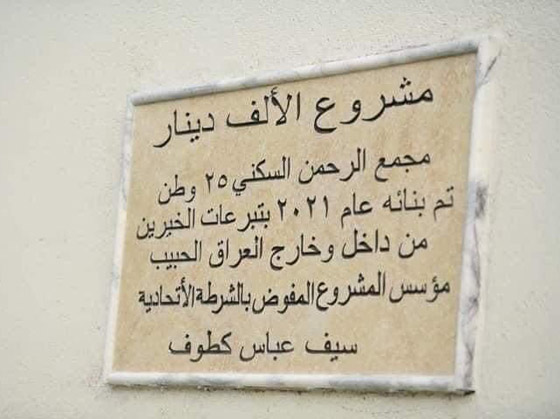 مشروع الألف دينار
مجمع الرحمن السكني ٢٥ وطن
تم بنائه عام ٢٠٢١ بتبرعات الخيرين
من داخل وخارج العراق الحبيب
مؤسس المشروع المفوض بالشرطة الأتحادية
سيف عباس كطوف